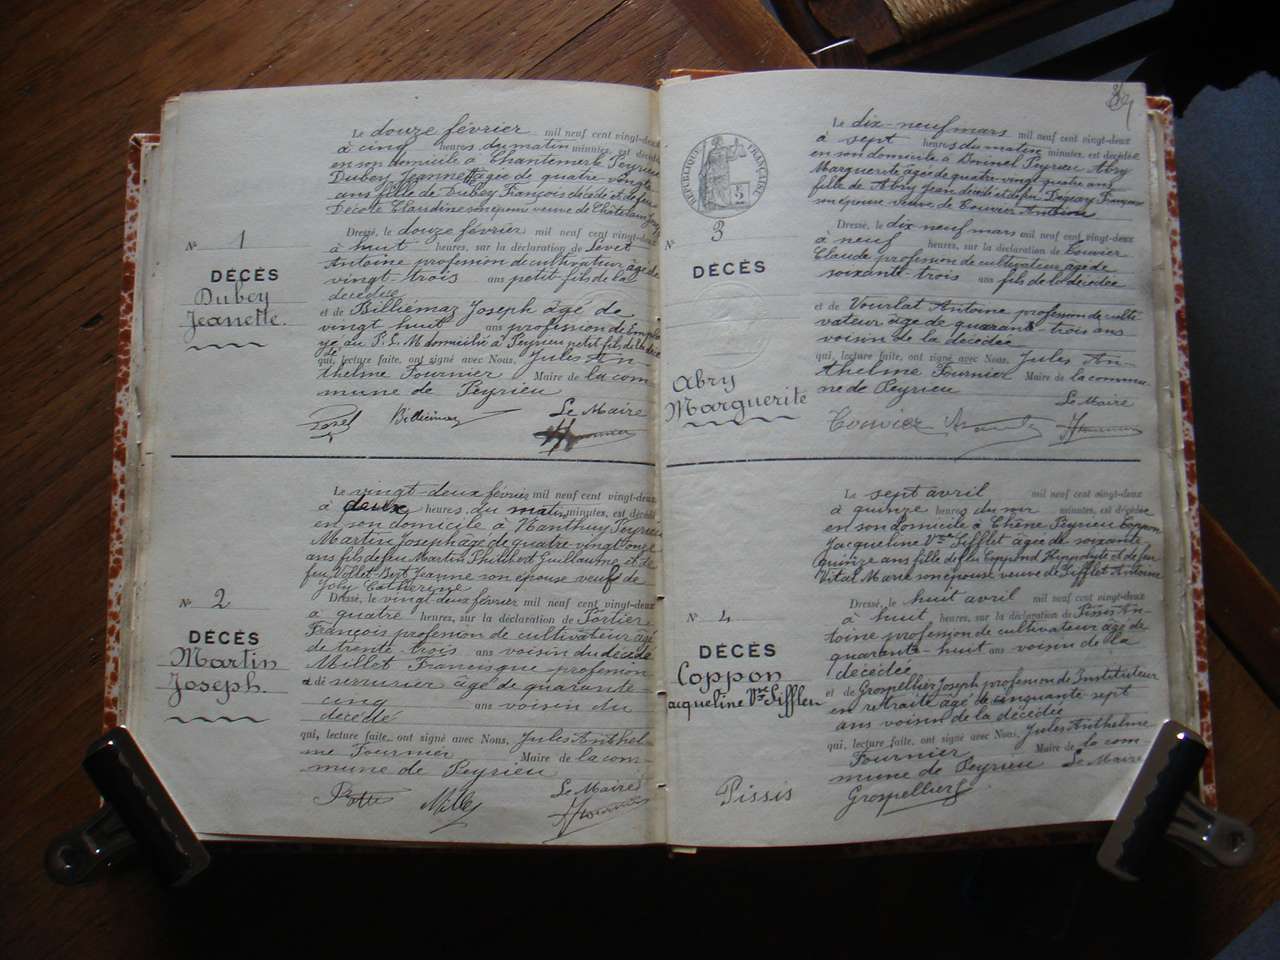 Le douze février mil neuf cent vingt-deux
à cinq heures du matin minutes, est décédée
en son domicile à Chantemerle Peyrieu
Dubey Jeannette âgée de quatre-vingt
ans fille de Dubey François décédé et de feu
Décote Claudine son épouse veuve de Châtelain
Dressé, le douze février mil neuf cent vingt-deux
à huit heures, sur la déclaration de
Antoine profession de cultivateur âgé de
vingt trois ans petit fils de la
décédée
et de Billiémaz Joseph âgé de
vingt huit ans profession de Emplo
yé au P. L. M domicilié à Peyrieu petit fils de la
qui, lecture faite, ont signé avec Nous, Jules An
thelme Fournier Maire de la com
mune de Peyrieu
Le Maire
Billiémaz
N° 1
DÉCÈS
Dubey
Jeanette.
Le vingt-deux février mil neuf cent vingt-deux
à deux heures du matin minutes, est décédé
en son domicile à Nanthuy Peyrieu
Martin Joseph âgé de quatre vingt onze
ans fils de feu Martin Philibert Guillaume et de
feu Jeanne son épouse veuf de
Joly Catherine
Dressé, le vingt-deux février mil neuf cent vingt-deux
à quatre heures, sur la déclaration de Portier
François profession de cultivateur âgé
de trente trois ans voisin du décédé
Millet Francisque profession
et de serrurier âgé de quarante
cinq ans voisin du
décédé
qui, lecture faite, ont signé avec Nous, Jules Anthel-
me Fournier Maire de la com-
mune de Peyrieu
Le Maire
N° 2
DÉCÈS
Martin
Joseph.
Le dix-neuf mars mil neuf cent vingt-deux
à sept heures du matin minutes, est décédée
en son domicile à Peyrieu Abry
Marguerite âgée de quatre-vingt quatre ans
fille de Abry Jean décédé et de feu Françoise
son épouse veuve de Couvier
Dressé, le dix neuf mars mil neuf cent vingt-deux
à neuf heures, sur la déclaration de Couvier
Claude profession de cultivateur âgé de
soixante trois ans fils de la décédée
et de Vourlat Antoine profession de culti
vateur âgé de quarante trois ans
voisin de la décédée
qui, lecture faite, ont signé avec Nous, Jules An-
thelme Fournier Maire de la commu-
ne de Peyrieu
Le Maire
Couvier
RÉPUBLIQUE FRANÇAISE
N° 3
DÉCÈS
Abry
Marguerite
Le sept avril mil neuf cent vingt-deux
à quinze heures du soir minutes, est décédée
en son domicile à Chêne Peyrieu Coppon
Jacqueline Vve Sifflet âgée de soixante
quinze ans fille de feu Coppond Hippolyte et de feu
Vital Marie son épouse veuve de Sifflet Antoine
Dressé, le huit avril mil neuf cent vingt-deux
à huit heures, sur la déclaration de Pissis An-
toine profession de cultivateur âgé de
quarante-huit ans voisin de la
décédée
et de Grospellier Joseph profession de Instituteur
en retraite âgé de cinquante sept
ans voisin de la décédée
qui, lecture faite, ont signé avec Nous, Jules Anthelme
Fournier Maire de la com
mune de Peyrieu Le Maire
Pissis Grospellier
N° 4
DÉCÈS
Coppon
acqueline Vve Sifflet